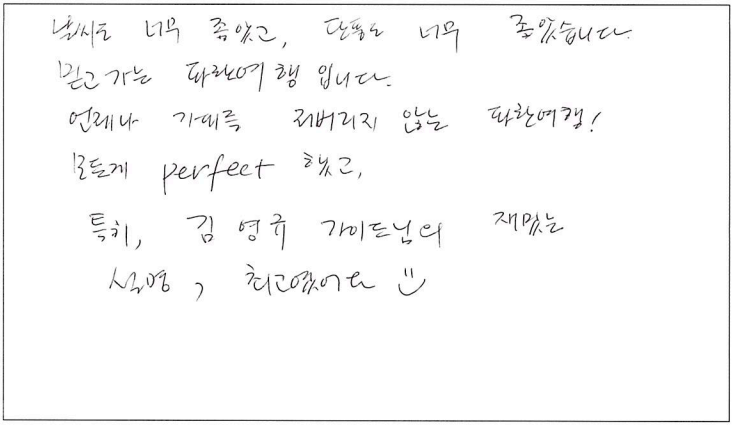 날씨도 너무 좋았고, 단풍도 너무 좋았습니다.
믿고 가는 파란여행 입니다.
언제나 기대를 저버리지 않는 파란여행!
모든게 perfect 했고,
특히, 김영규 가이드님의 재밌는
설명, 최고였어요